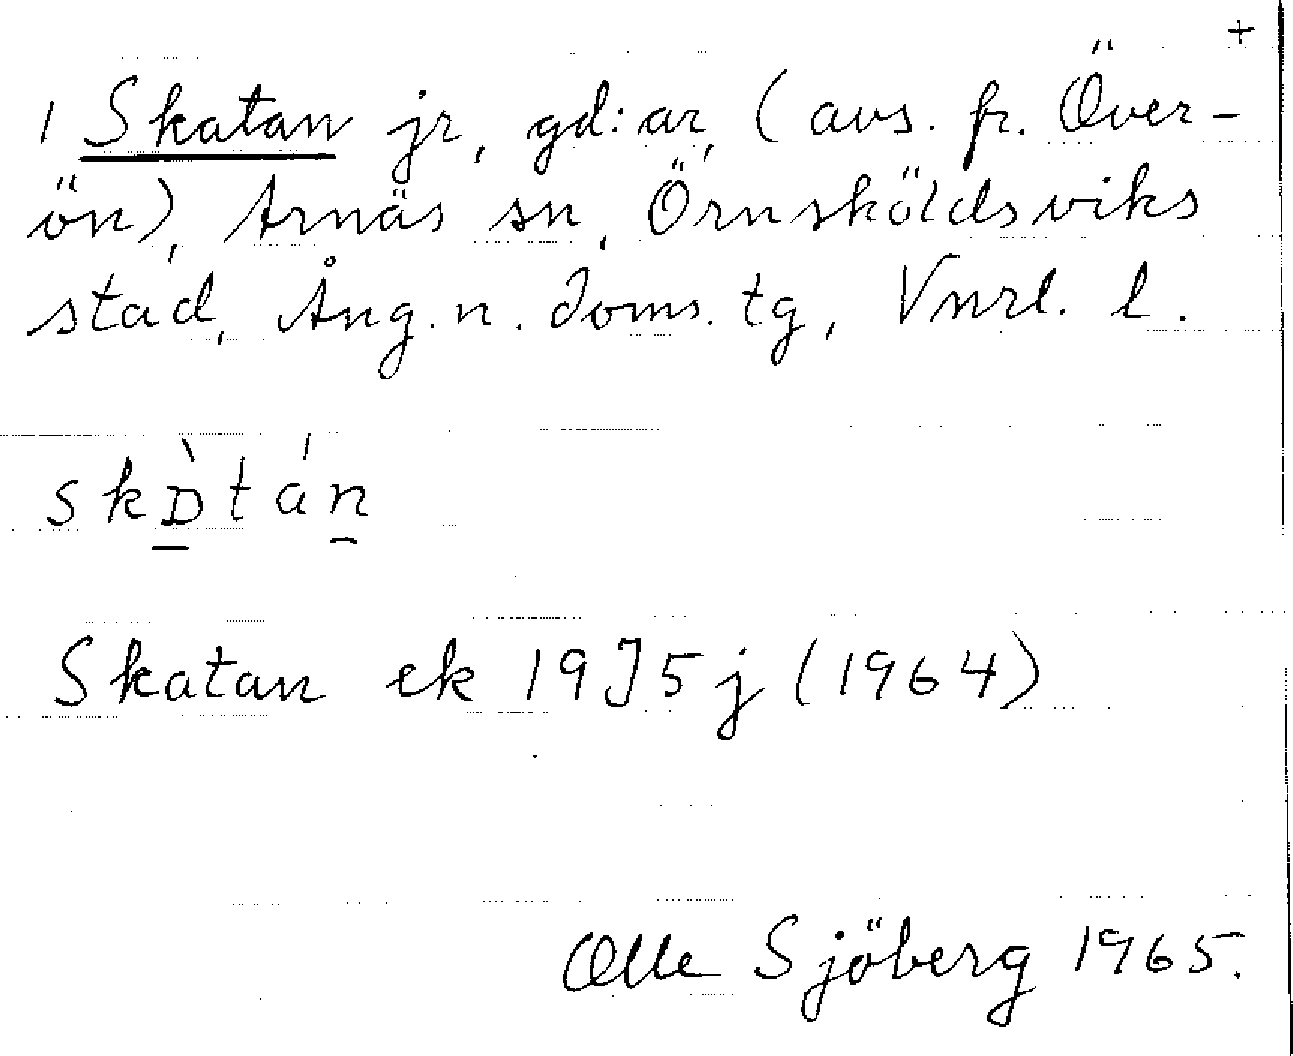 +
1 Skatan jr, gd:ar, (avs. fr. Över-
ön), Arnäs sn, Örnsköldsviks
stad, Ång. n. doms. tg, Vnrl. l.
skɒ̠̀tán̯
Skatan ek 19J5j (1964)
Olle Sjöberg 1965.